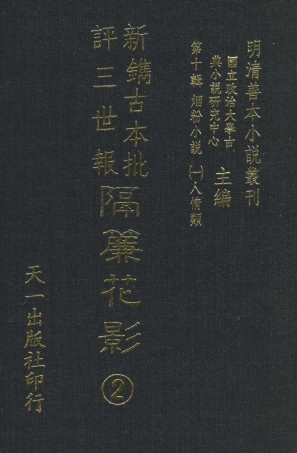 明清善本小說叢刊
國立政治大學古
典小說研究中心
主編
第十輯 烟粉小說 ㈠人情類
新鐫古本批
評三世報
隔簾花影
②
天一出版社印行